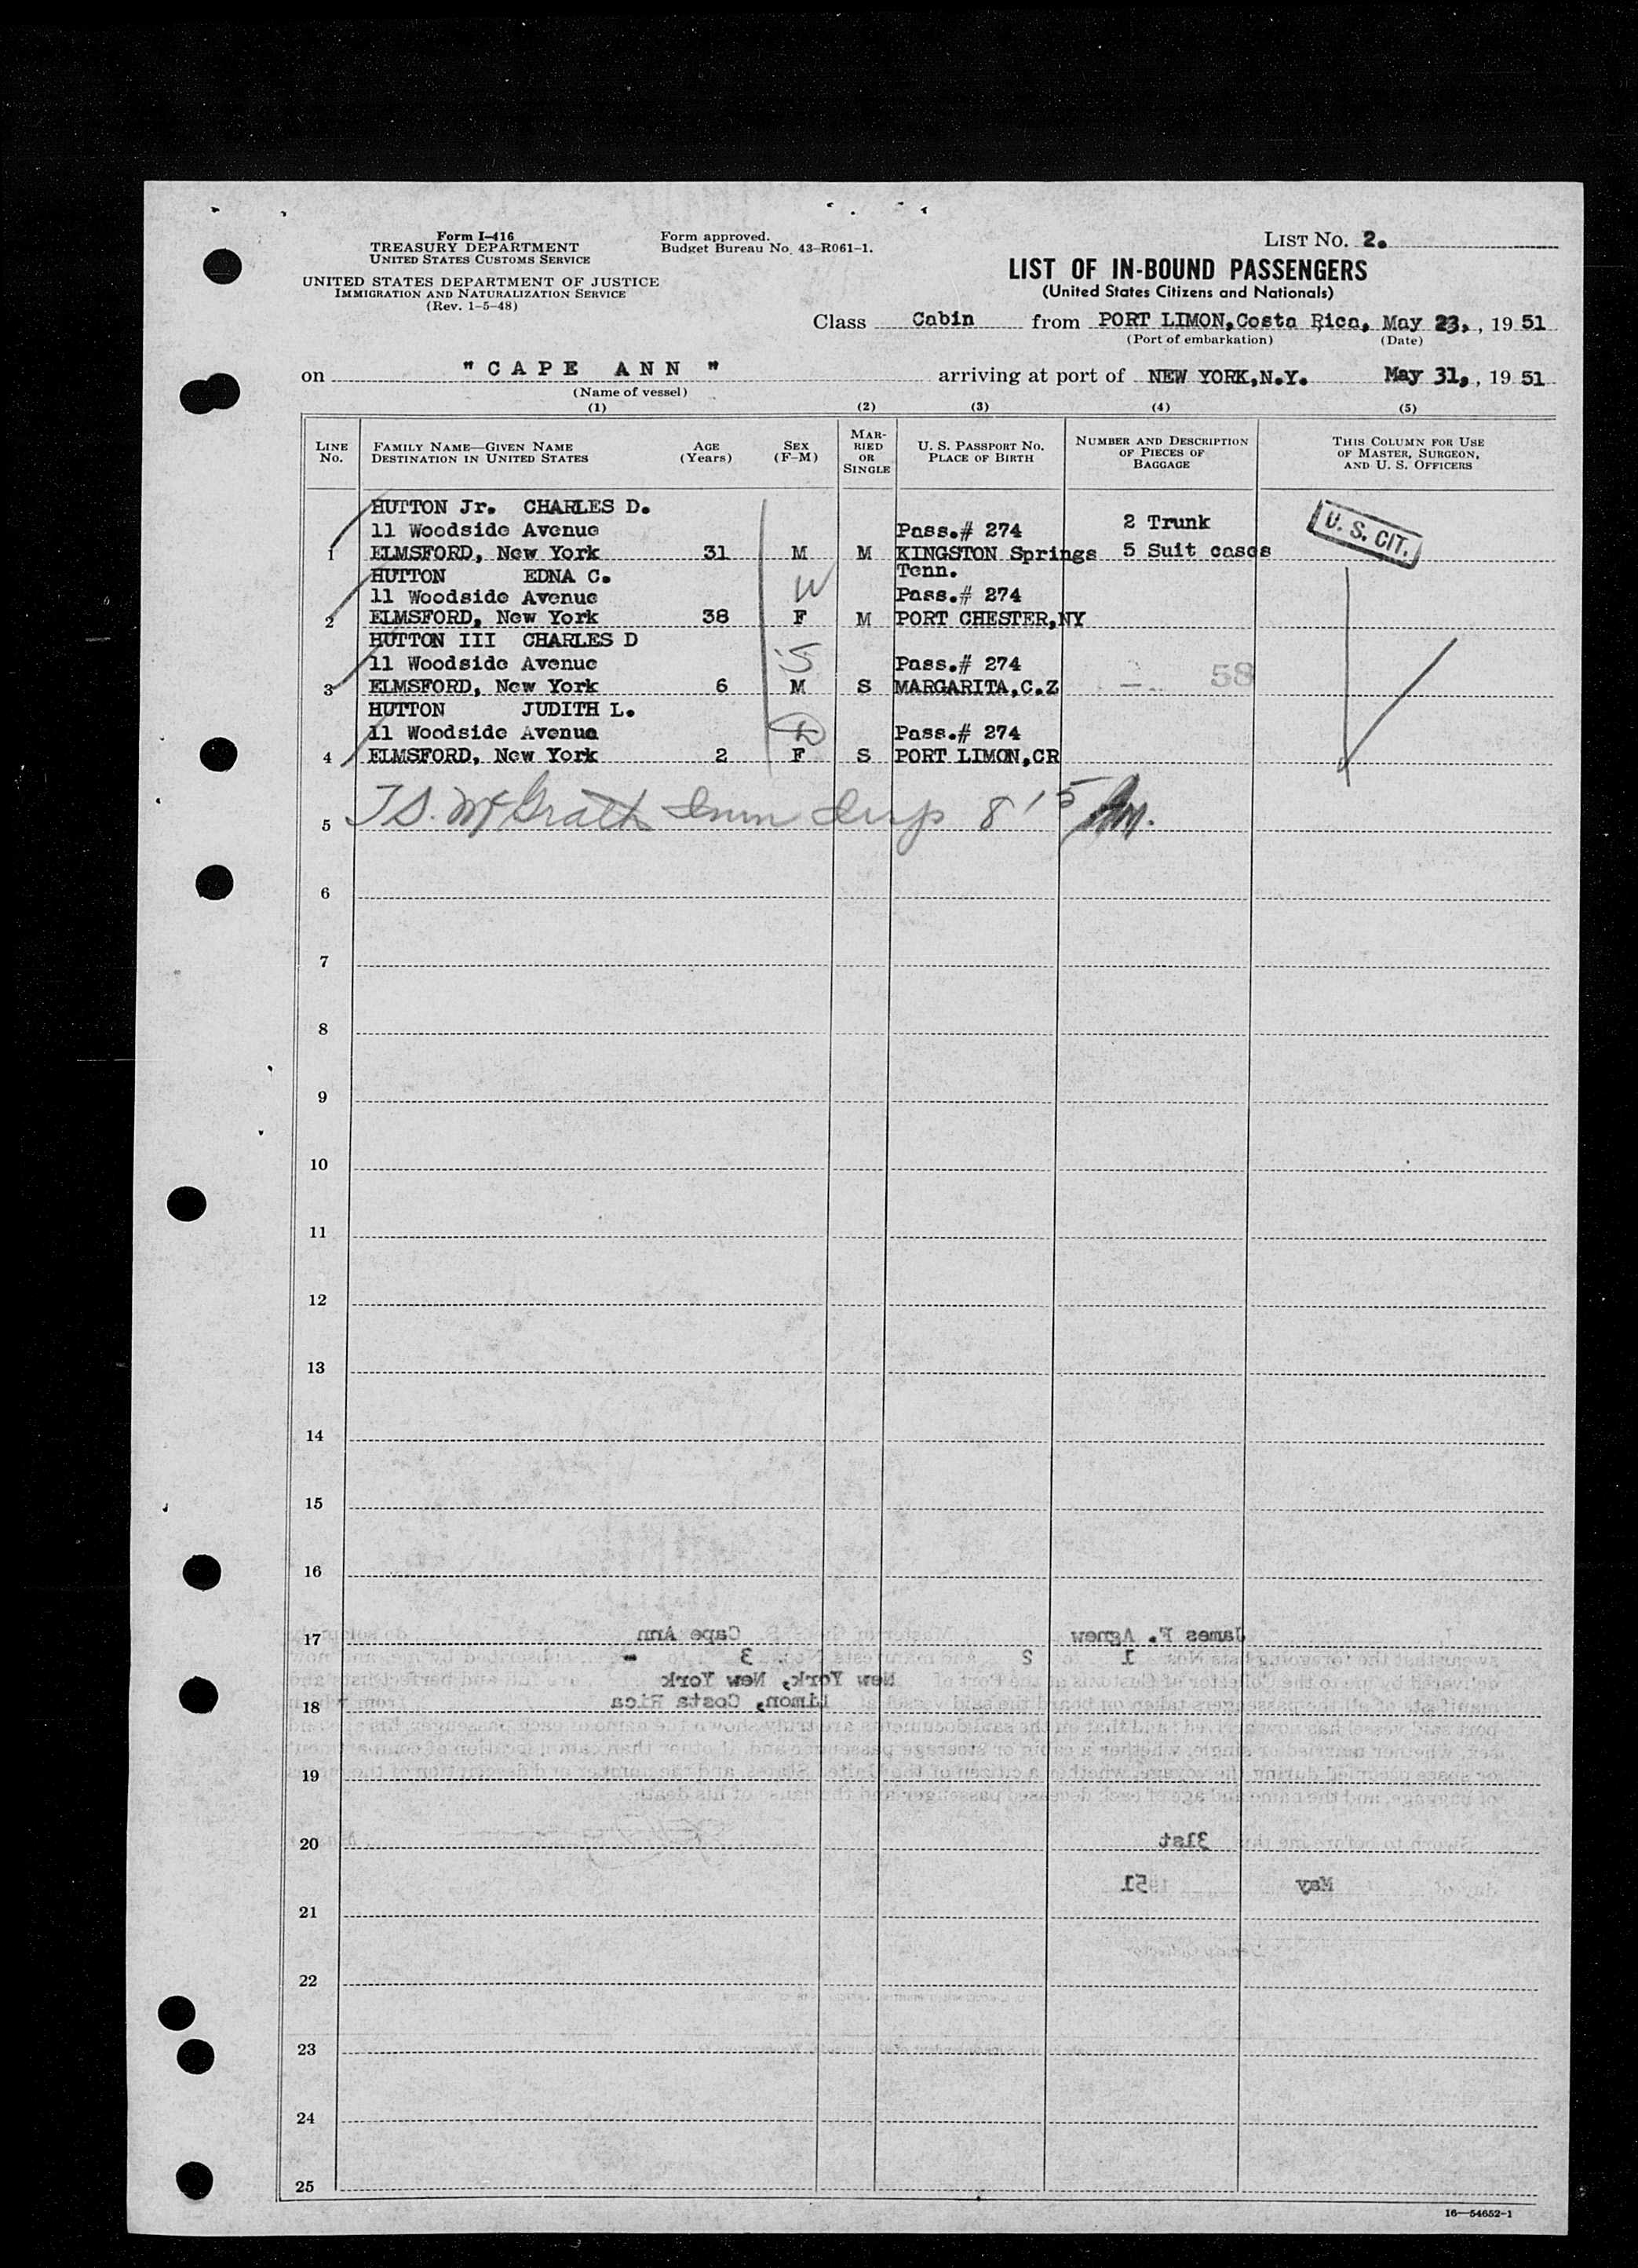 Form I-416
TREASURY DEPARTMENT
UNITED STATES CUSTOMS SERVICE
UNITED STATES DEPARTMENT OF JUSTICE
IMMIGRATION AND NATURALIZATION SERVICE
(Rev. 1-5-48)
Form approved.
Budget Bureau No. 43-R061-1.
LIST NO. 2.
LIST OF IN-BOUND PASSENGERS
(United States Citizens and Nationals)
Class Cabin from PORT LIMON, Costa Rica, May 23, , 19 51
(Port of embarkation) (Date)
on " CAPE ANN " arriving at port of NEW YORK,N.Y. May 31, , 19 51
(Name of vessel)
(1) (2) (3) (4) (5)
LINE NO.
FAMILY NAME—GIVEN NAME
DESTINATION IN UNITED STATES
AGE (Years)
SEX (F-M)
MARRIED OR SINGLE
U. S. PASSPORT NO.
PLACE OF BIRTH
NUMBER AND DESCRIPTION OF PIECES OF BAGGAGE
THIS COLUMN FOR USE OF MASTER, SURGEON, AND U. S. OFFICERS
HUTTON Jr. CHARLES D.
11 Woodside Avenue Pass.# 274 2 Trunk U. S. CIT.
1 ELMSFORD, New York 31 M M KINGSTON Springs 5 Suit cases
HUTTON EDNA C. Tenn.
11 Woodside Avenue W Pass.# 274
2 ELMSFORD, New York 38 F M PORT CHESTER,NY
HUTTON III CHARLES D
11 Woodside Avenue 5 Pass.# 274
3 ELMSFORD, New York 6 M S MARGARITA,C.Z 58
HUTTON JUDITH L.
11 Woodside Avenue Pass.# 274
4 ELMSFORD, New York 2 F S PORT LIMON,CR
5 McGrath Imm Insp 8 15
6
7
8
9
10
11
12
13
14
15
16
17 Cape Ann James F. Agnew
3 2 1
New York, New York
18 Limon, Costa Rica
19
20 31st
1951 May
21
22
23
24
25
16—54652-1